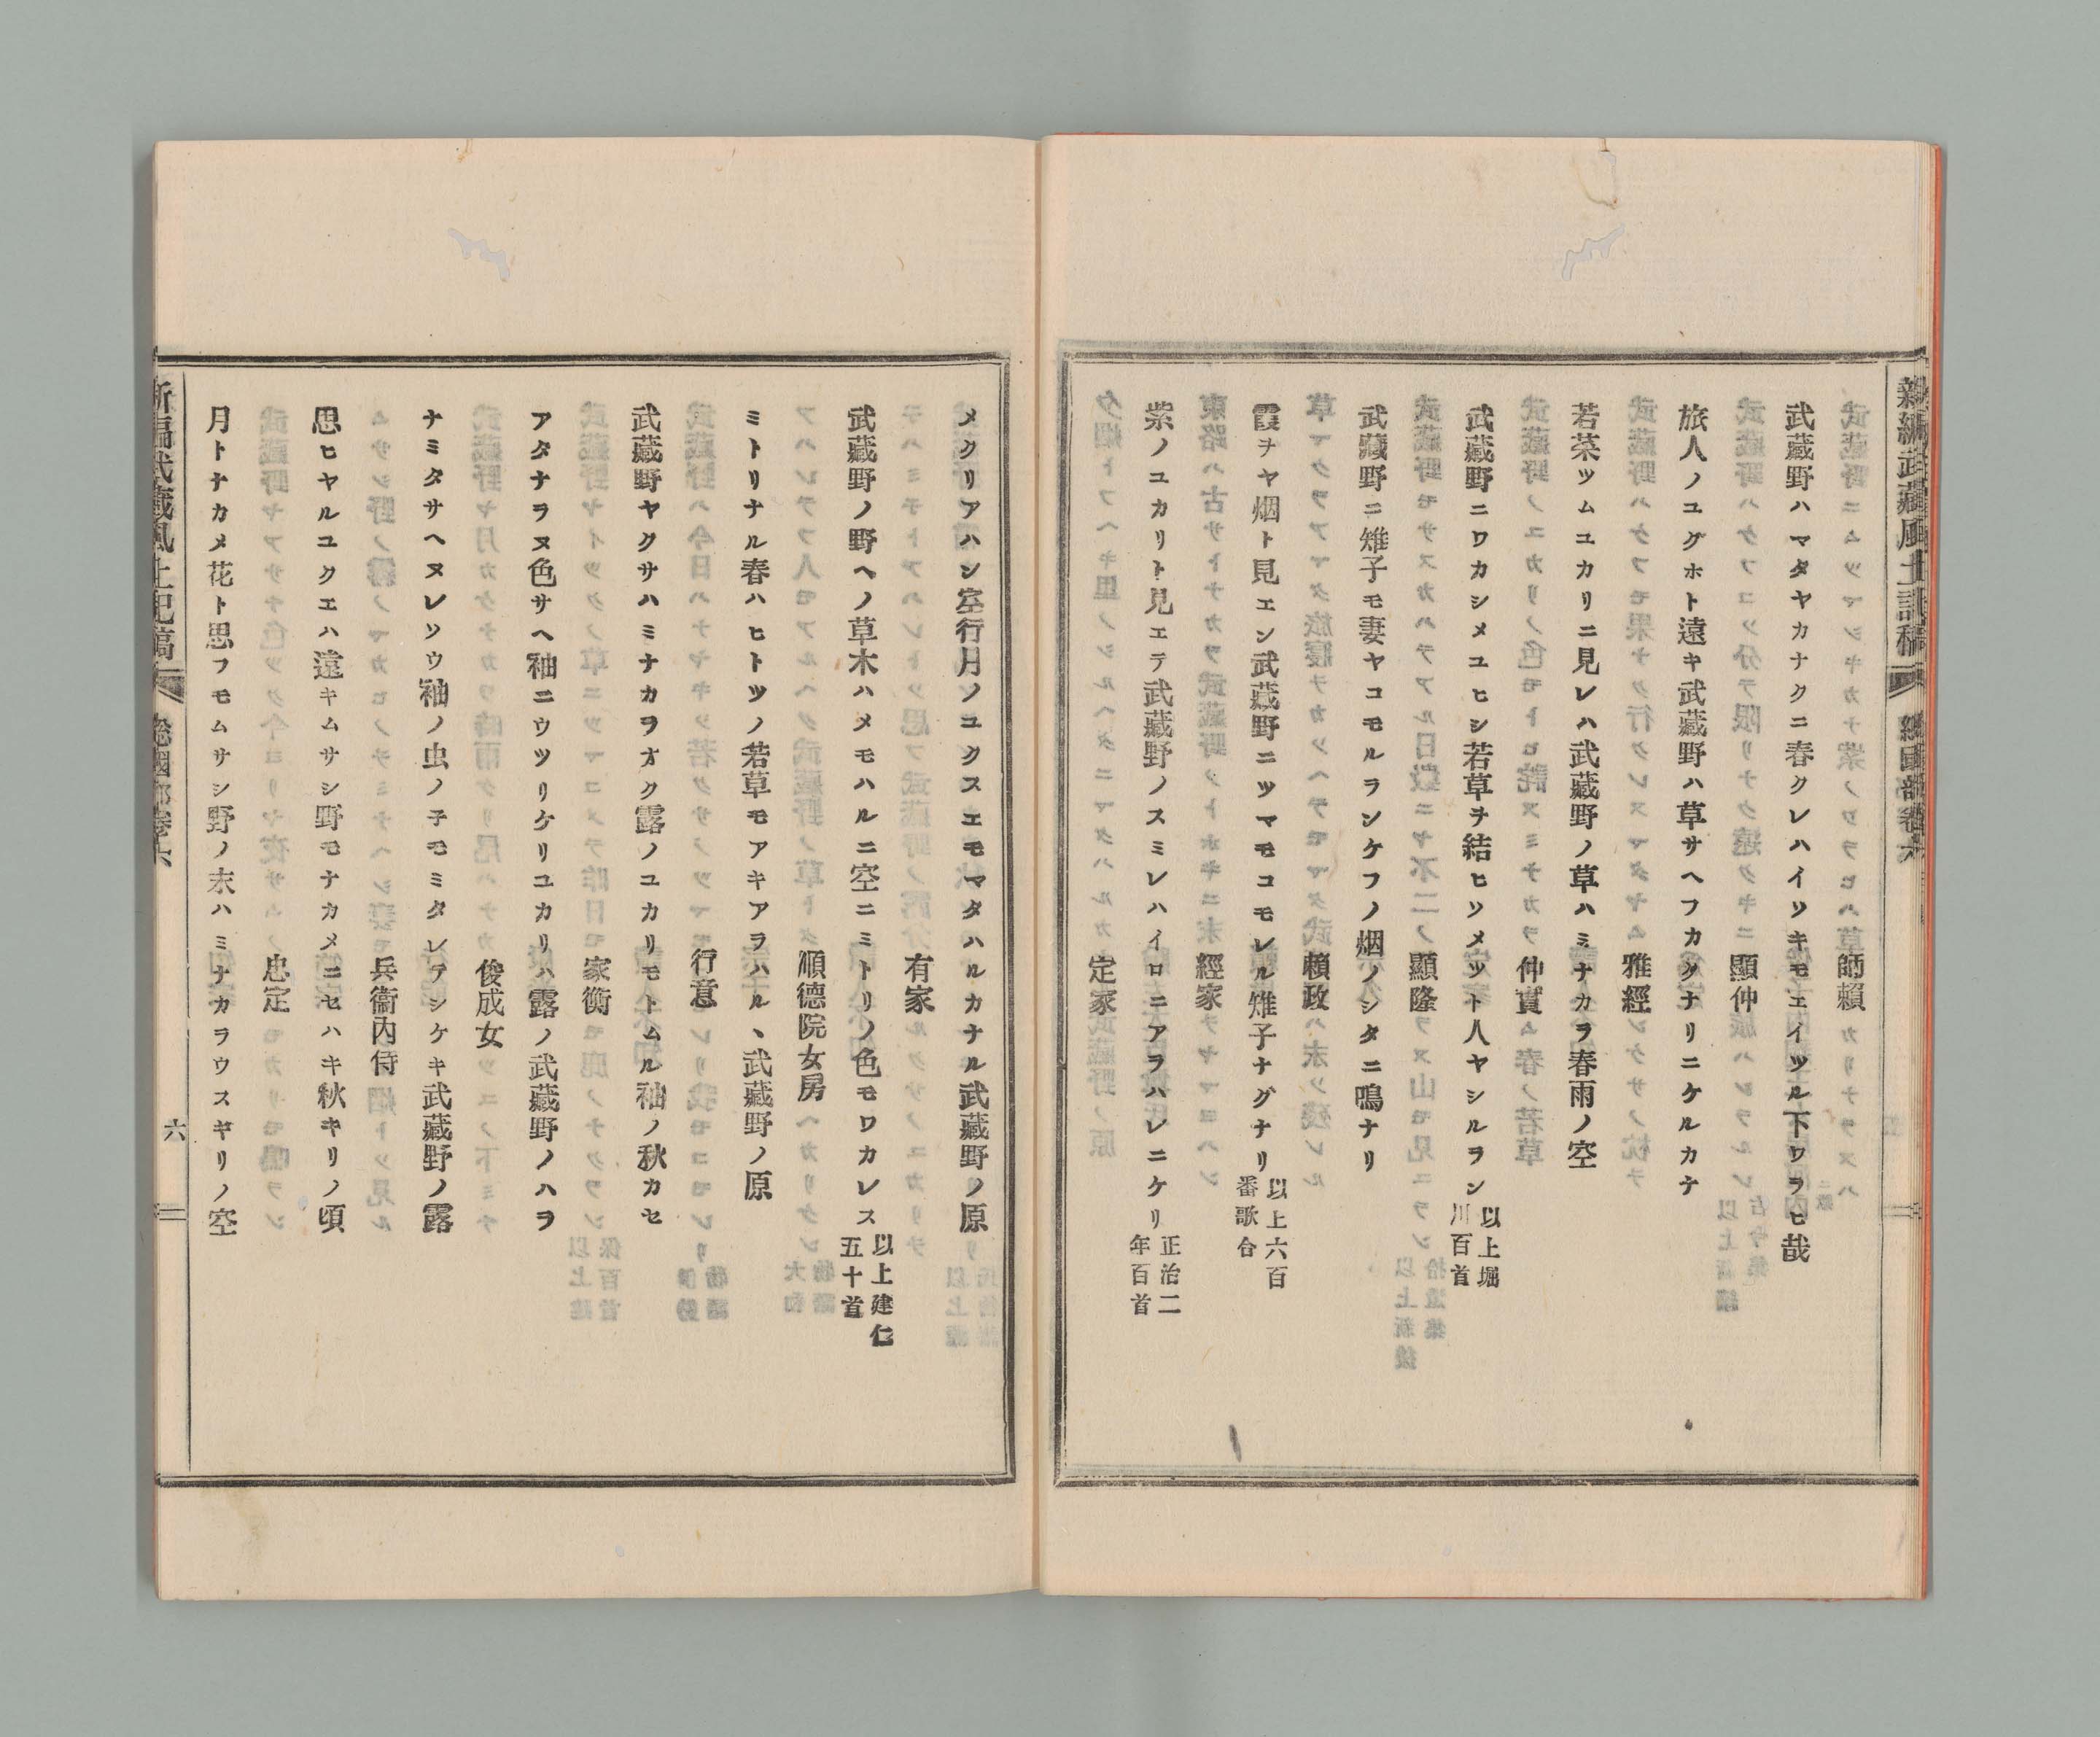 新編武藏風土記稿 總國部卷六
師賴
武藏野ハマタヤカナクニ春クレハイツキモエイツル下ワラヒ哉
顯仲
旅人ノユグホト遠キ武藏野ハ草サヘフカクナリニケルカナ
雅經
若菜ツムユカリニ見レハ武藏野ノ草ハミナカラ春雨ノ空
仲實
武藏野ニワカシメユヒシ若草ヲ結ヒソメツト人ヤシルラン 以上堀
川百首
顯隆
武藏野ニ雉子モ妻ヤコモルランケフノ烟ノシタニ鳴ナリ
賴政
霞ヲヤ烟ト見エン武藏野ニツマモコモレル雉子ナグナリ 以上六百
番歌合
經家
紫ノユカリト見エテ武藏野ノスミレハイロニアラハレニケリ 正治二
年百首
定家
メクリアハン空行月ノユクスエモマタハルカナル武藏野ノ原
有家
武藏野ノ野ヘノ草木ハメモハルニ空ニミトリノ色モワカレス 以上建仁
五十首
順德院女房
ミトリナル春ハヒトツノ若草モアキアラハルヽ武藏野ノ原
行意
武藏野ヤクサハミナカヲオク露ノユカリモトムル袖ノ秋カセ
家衡
アタナヲヌ色サヘ袖ニウツリケリユカリハ露ノ武藏野ノハヲ
俊成女
ナミタサヘヌレソウ袖ノ虫ノ子モミタレアシケキ武藏野ノ露
兵衞內侍
思ヒヤルユクエハ遠キムサシ野モナカメニセハキ秋キリノ頃
忠定
月トナカメ花ト思フモムサシ野ノ末ハミナカラウスキリノ空
新編武藏風土記稿 總國部卷六 六